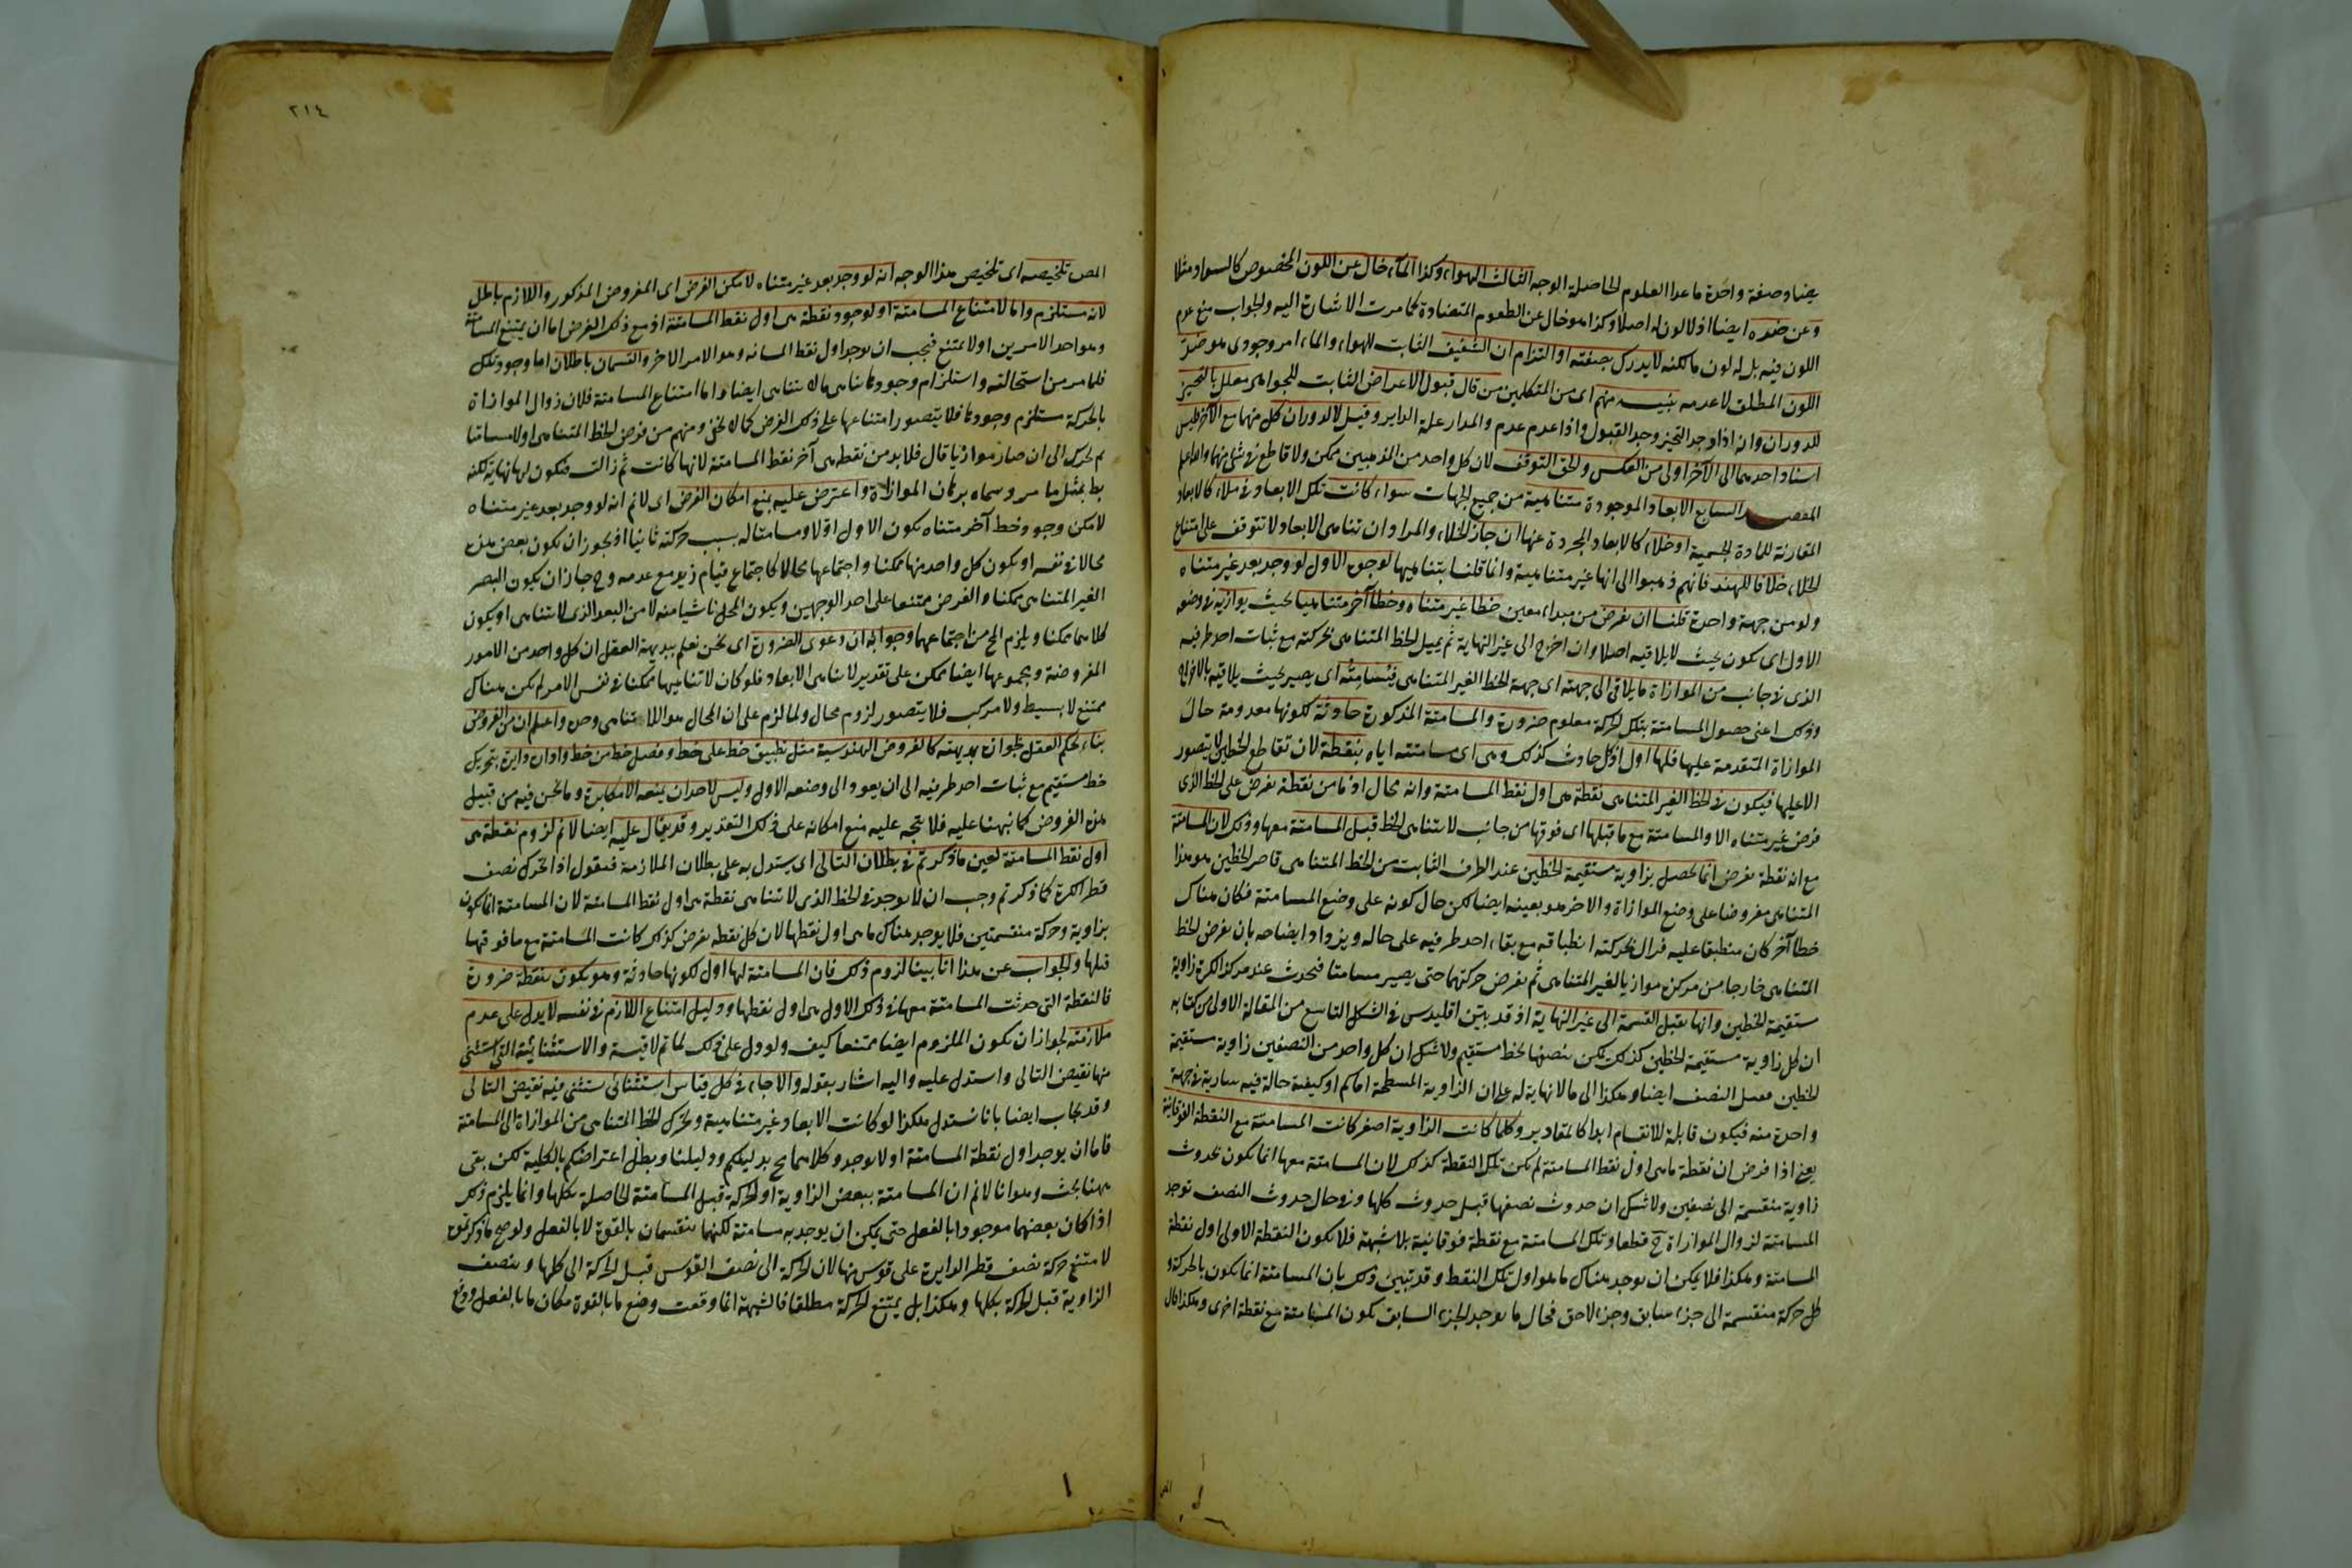 بيضا وصفة واحدة ما عدا العلوم الحاصلة الوجه الثالث الهواء وكذا الماء خال عن اللون المخصوص كالسواد مثلا
وعن ضده ايضا اذ لا لون له اصلا وكذا هو خال عن الطعوم المتضادة كما مرت الاشارة اليه والجواب منع عدم
اللون فيه بل له لون ما لكنه لا يدرك بصفته او التزام ان الشفيف الثابت للهواء والماء امر وجودى هو ضد
اللون المطلق لا عدمه تنبيه منهم اى من المتكلمين من قال قبول الاعراض الثابت للجواهر معلل بالتحيز
للدوران وانه اذا وجد التحيز وجد القبول واذا عدم عدم والمدار علة الداير وقيل لا لدوران كل منهما مع الآخر فليس
اسناد احدهما الى الآخر اولى من العكس والحق التوقف لان كل واحد من المذهبين ممكن ولا قاطع فى شئ منهما والله اعلم
المقصد السابع الابعاد الموجودة متناهية من جميع الجهات سواء كانت تلك الابعاد فى ملاء كالابعاد
المقارنة للمادة الجسمية او خلاء كالابعاد المجردة عنها ان جاز الخلاء والمراد ان تناهى الابعاد لا تتوقف على امتناع
الخلاء خلافا للهند فانهم ذهبوا الى انها غير متناهية وانما قلنا بتناهيها لوجوه الاول لو وجد بعد غير متناه
ولو من جهة واحدة قلنا ان نفرض من مبداء معين خطا غير متناه وخطا آخر متناهيا بحيث يوازيه فى وضعه
الاول اى يكون بحيث لا يلاقيه اصلا وان اخرج الى غير النهاية ثم يميل الخط المتناهى بحركته مع ثبات احد طرفيه
الذى فى جانب من الموازاة ما يلاقى الى جهته اى جهة الخط الغير المتناهى فيسامته اى يصير بحيث يلاقيه بالاخراج
وذلك اعنى حصول المسامتة بتلك الحركة معلوم ضرورة والمسامتة المذكورة حادثة لكونها معدومة حال
الموازاة المتقدمة عليها فلها اول اذ كل حادث كذلك وهى اى مسامتته اياه بنقطة لان تقاطع الخطين لا يتصور
الا عليها فيكون فى الخط الغير المتناهى نقطة هى اول نقط المسامتة وانه محال اذ ما من نقطة تفرض على الخط الذى
فرض غير متناه الا والمسامتة مع ما قبلها اى فوقها من جانب لا تناهى الخط قبل المسامتة معها وذلك لان المسامتة
مع اية نقطة تفرض انما تحصل بزاوية مستقيمة الخطين عند الطرف الثابت من الخط المتناهى فاحد الخطين هو هذا
المتناهى مفروضا على وضع الموازاة والاخر هو بعينه ايضا لكن حال كونه على وضع المسامتة فكان هناك
خطا آخر كان منطبقا عليه فزال بحركته انطباقه مع بقاء احد طرفيه على حاله ويزداد ايضاحه بان نفرض الخط
المتناهى خارجا من مركز كرة موازيا لغير المتناهى ثم نفرض حركتها حتى يصير مسامتا فتحدث عند مركز الكرة زاوية
مستقيمة الخطين وانها تقبل القسمة الى غير النهاية اذ قد بين اقليدس فى الشكل التاسع من المقالة الاولى من كتابه
ان كل زاوية مستقيمة الخطين كذلك يمكن تنصيفها بخط مستقيم ولا شك ان كل واحد من النصفين زاوية مستقيمة
الخطين فيقبل النصف ايضا وهكذا الى ما لا نهاية له على ان الزاوية المسطحة اما كم او كيفية حالة فيه سارية فى جهة
واحدة منه فيكون قابلة للانقسام ابدا كالمقادير وكلما كانت الزاوية اصغر كانت المسامتة مع النقطة الفوقانية
يعنى اذا فرض ان نقطة ما هى اول نقط المسامتة لم يكن تلك النقطة كذلك لان المسامتة معها انما يكون بحدوث
زاوية منقسمة الى نصفين ولا شك ان حدوث نصفها قبل حدوث كلها وفى حال حدوث النصف توجد
المسامتة لزوال الموازاة ح قطعا وتلك المسامتة مع نقطة فوقانية بلا شبهة فلا تكون النقطة الاولى اول نقطة
المسامتة وهكذا فلا يمكن ان يوجد هناك ما هو اول تلك النقط وقد تبين ذلك بان المسامتة انما يكون بالحركة و
كل حركة منقسمة الى جزء سابق وجزء لاحق فحال ما يوجد الجزء السابق يكون المسامتة مع نقطة اخرى وهكذا قال
٢١٤
المص تلخيصه اى تلخيص هذا الوجه انه لو وجد بعد غير متناه لامكن الفرض اى المفروض المذكور واللازم باطل
لانه مستلزم واما لامتناع المسامتة او لوجود نقطة هى اول نقط المسامتة اذ مع ذلك الفرض اما ان يمتنع المسامتة
وهو احد الامرين او لا يمتنع فيجب ان يوجد اول نقط المسامتة وهو الامر الاخر والقسمان باطلان اما وجود تلك
فلما مر من استحالته واستلزام وجودها تناهى ما لا يتناهى ايضا واما امتناع المسامتة فلان زوال الموازاة
بالحركة مستلزم وجودها فلا يتصور امتناعها على ذلك الفرض كما لا يخفى ومنهم من فرض الخط المتناهى اولا مسامتا
ثم تحرك الى ان صار موازيا قال فلا بد من نقطة هى آخر نقط المسامتة لانها كانت ثم زالت فتكون لها نهاية لكنه
بط بمثل ما مر وسماه برهان الموازاة واعترض عليه بمنع امكان الفرض اى لا نم انه لو وجد بعد غير متناه
لامكن وجود خط آخر متناه يكون الاول اولا ومسامتا له بسبب حركته ثانيا اذ يجوز ان يكون بعض هذه
محالا فى نفسه او يكون كل واحد منها ممكنا واجتماعها محالا كاجتماع قيام زيد مع عدمه وح جاز ان يكون البعد
الغير المتناهى ممكنا والفرض ممتنعا على احد الوجهين ويكون المحال ناشيا منه لا من البعد الذى لا يتناهى او يكون
كلاهما ممكنا ويلزم المح من اجتماعهما وجوابه ان دعوى الضرورة اى نحن نعلم ببديهة العقل ان كل واحد من الامور
المفروضة ومجموعها ايضا ممكن على تقدير لا تناهى الابعاد فلو كان لا تناهيها ممكنا فى نفس الامر لم يكن هناك
ممتنع لا بسيط ولا مركب فلا يتصور لزوم محال ولما لزم على ان المحال هو اللاتناهى وحده واعلم ان من الفروض
بناء بحكم العقل بجوازه بديهة كالفروض الهندسية مثل تطبيق خط على خط وفصل خط من خط وادارة دايرة بتحريك
خط مستقيم مع ثبات احد طرفيه الى ان يعود الى وضعه الاول وليس لاحد ان يمنعه الا مكابرة وما نحن فيه من قبيل
هذه الفروض كما نبهنا عليه فلا يتجه عليه منع امكانه على ذلك التقدير وقد يقال عليه ايضا لا نم لزوم نقطة هى
اول نقط المسامتة لعين ما ذكرتم فى بطلان التالى اى يستدل به على بطلان الملازمة فنقول اذا تحرك نصف
قطر الكرة كما ذكرتم وجب ان لا يوجد فى الخط الذى لا يتناهى نقطة هى اول نقط المسامتة لان المسامتة انما يكون
بزاوية وحركة منقسمتين فلا يوجد هناك ما هى اول نقطها لان كل نقطة تفرض كذلك كانت المسامتة مع ما فوقها
قبلها والجواب عن هذا انا بينا لزوم ذلك فان المسامتة لها اول لكونها حادثة وهو يكون بنقطة ضرورة
فالنقطة التى حدثت المسامتة معها فى ذلك الاول هى اول نقطها ودليل امتناع اللازم فى نفسه لا يدل على عدم
ملازمته لجواز ان يكون الملزوم ايضا ممتنعا كيف ولو دل على ذلك لما تم لا قيسة والاستثنائية التى استثنى
منها نقيض التالى واستدل عليه واليه اشار بقوله والا جاء فى كل قياس استثنائى ستثنى فيه نقيض التالى
وقد يجاب ايضا بانا نستدل هكذا لو كانت الابعاد غير متناهية وتحرك الخط المتناهى من الموازاة الى المسامتة
فاما ان يوجد اول نقطة المسامتة او لا يوجد وكلاهما مح بدليلكم ودليلنا وبطل اعتراضكم بالكلية لكن بقى
ههنا بحث وهو انا لا نم ان المسامتة ببعض الزاوية او الحركة قبل المسامتة الحاصلة بكلها وانما يلزم ذلك
اذا كان بعضهما موجودا بالفعل حتى يمكن ان يوجد به مسامتة لكنهما منقسمان بالقوة لا بالفعل ولو صح ما ذكرتموه
لامتنع حركة نصف قطر الدايرة على قوس منها لان الحركة الى نصف القوس قبل الحركة الى كلها وبنصف
الزاوية قبل الحركة بكلها وهكذا بل يمتنع الحركة مطلقا فالشبهة انما وقعت وضع ما بالقوة مكان ما بالفعل ووقع